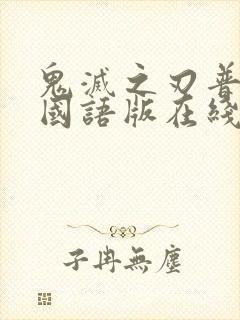 鬼滅之刃普
國語版在綫
子冉無塵